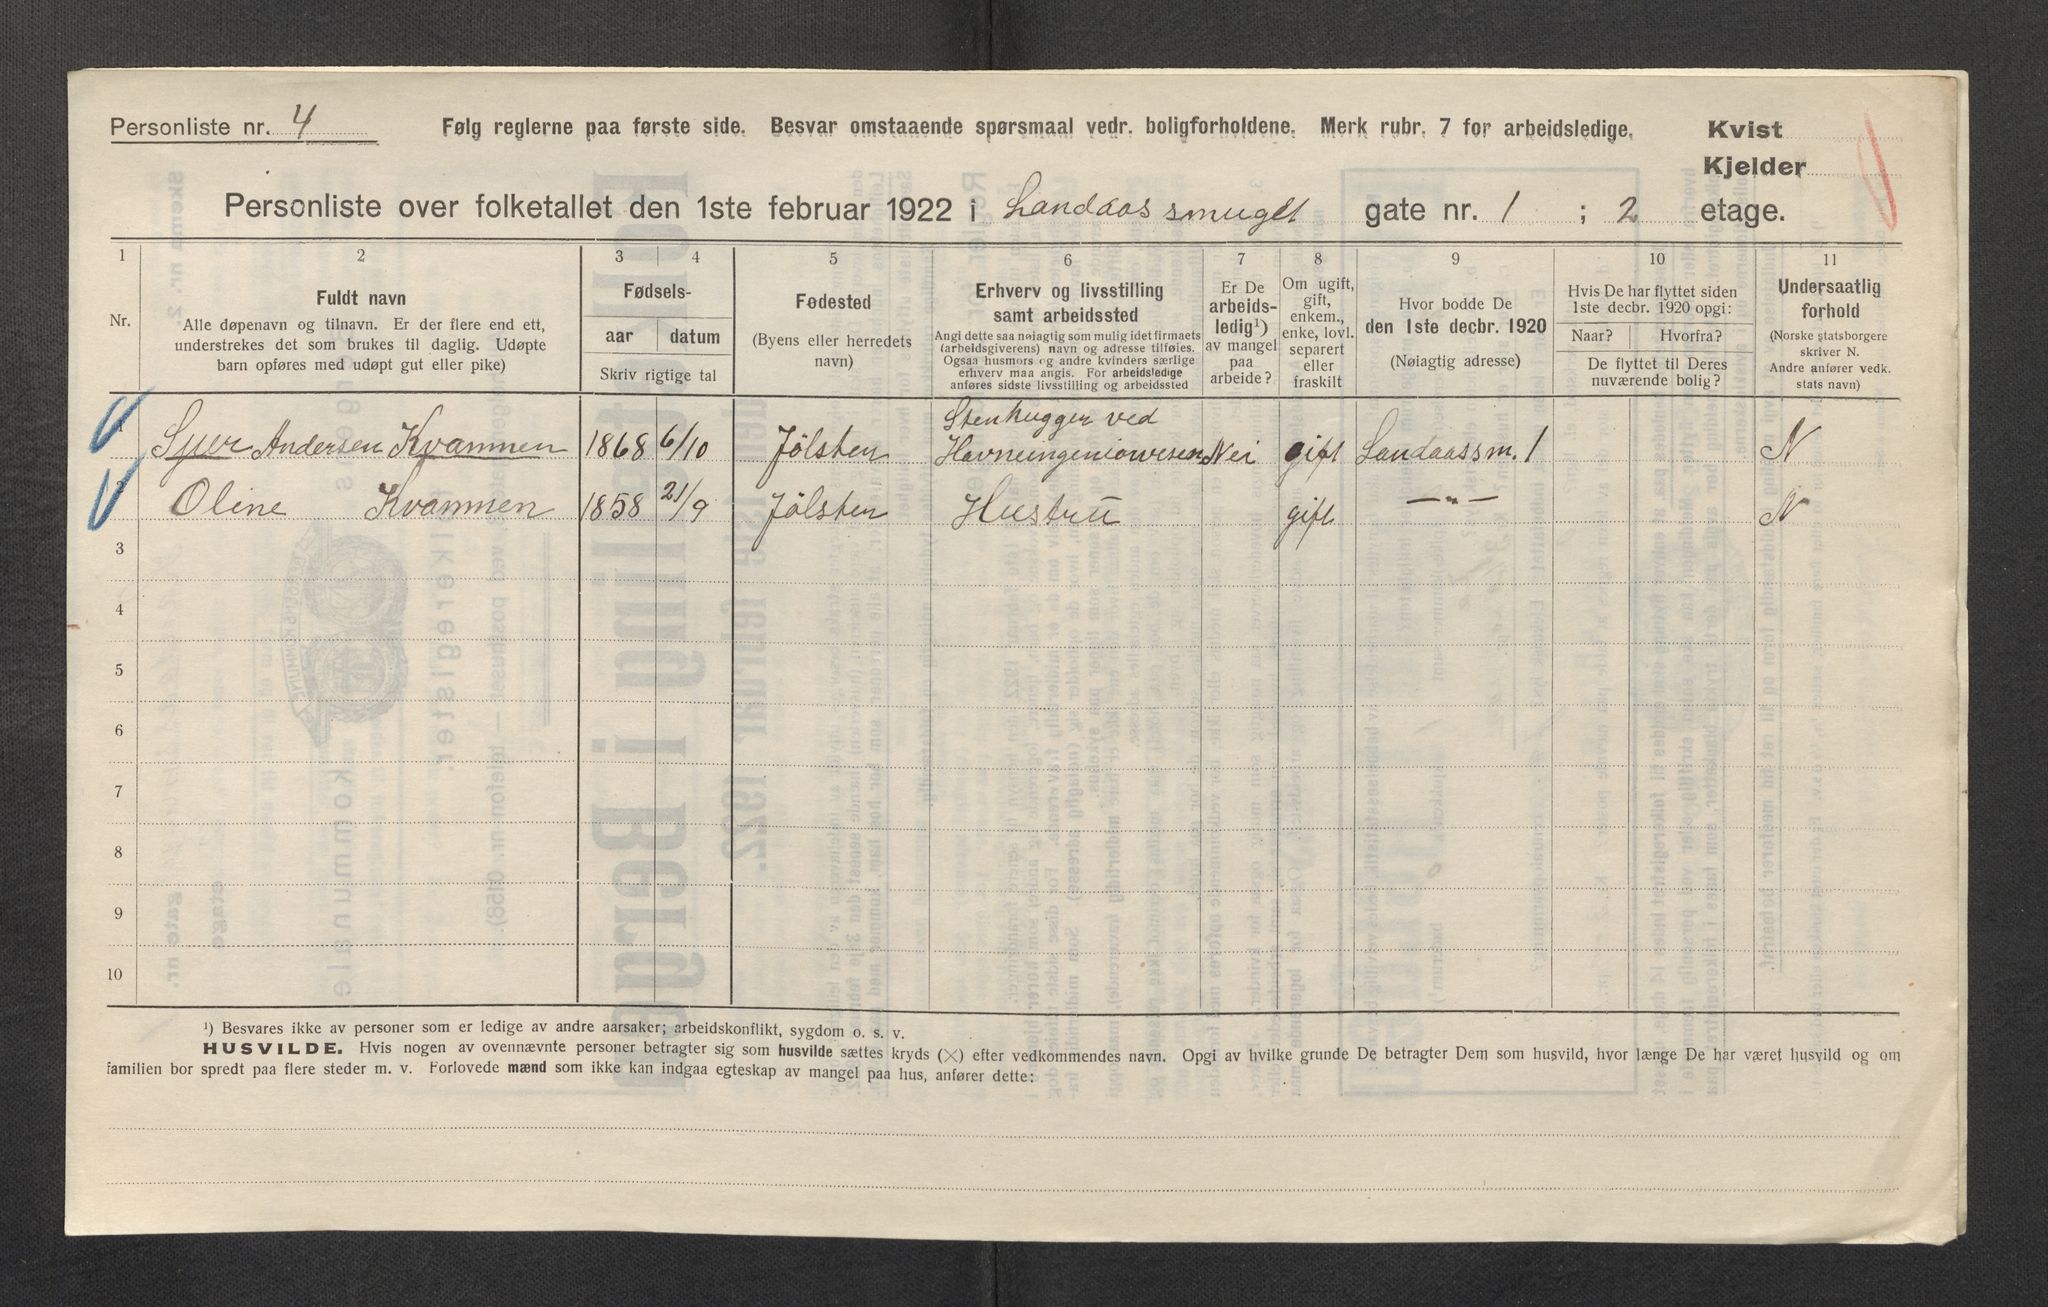 Personliste nr. 4
Følg reglerne paa første side. Besvar omstaaende spørsmaal vedr. boligforholdene. Merk rubr. 7 for arbeidsledige.
Kvist
Kjelder
Personliste over folketallet den 1ste februar 1922 i Landaassmuget gate nr. 1 ; 2 etage.
1 2 3 4 5 6 7 8 9 10 11
Nr.
Fuldt navn
Alle døpenavn og tilnavn. Er der flere end ett,
understrekes det som brukes til daglig. Udøpte
barn opføres med udøpt gut eller pike)
Fødsels-
aar datum
Skriv rigtige tal
Fødested
(Byens eller herredets
navn)
Erhverv og livsstilling
samt arbeidssted
Angi dette saa nøiagtig som mulig idet firmaets
(arbeidsgiverens) navn og adresse tilføies.
Ogsaa husmors og andre kvinders særlige
erhverv maa angis. For arbeidsledige
anføres sidste livsstilling og arbeidssted
Er De
arbeids-
ledig¹)
av mangel
paa
arbeide?
Om ugift,
gift,
enkem.,
enke, lovl.
separert
eller
fraskilt
Hvor bodde De
den 1ste decbr. 1920
(Nøiagtig adresse)
Hvis De har flyttet siden
1ste decbr. 1920 opgi:
Naar? Hvorfra?
De flyttet til Deres
nuværende bolig?
Undersaatlig
forhold
(Norske statsborgere
skriver N.
Andre anfører vedk.
stats navn)
Sjur Andersen Kvammen 1868 6/10 Jølster Stenhugger ved
Havneingeniøren Nei gift Landaassm. 1 N
Oline Kvammen 1858 21/9 Jølster Hustru gift —"— N
3
4
5
6
7
8
9
10
¹) Besvares ikke av personer som er ledige av andre aarsaker; arbeidskonflikt, sygdom o. s. v.
HUSVILDE. Hvis nogen av ovennævnte personer betragter sig som husvilde sættes kryds (×) efter vedkommendes navn. Opgi av hvilke grunde De betragter Dem som husvild, hvor længe De har været husvild og om
familien bor spredt paa flere steder m. v. Forlovede mænd som ikke kan indgaa egteskap av mangel paa hus, anfører dette: